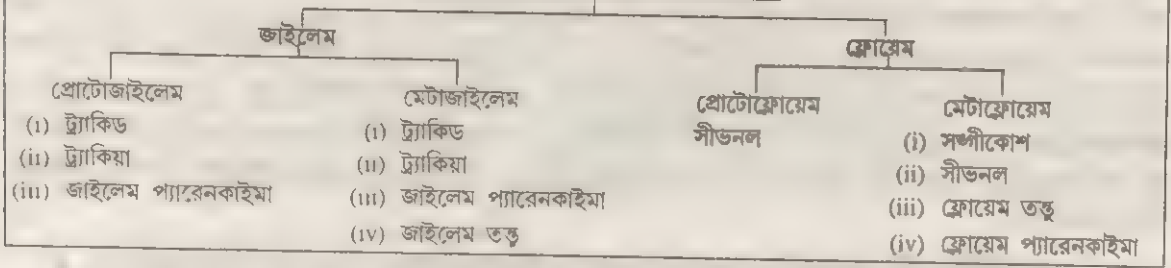 জাইলেম
ফ্লোয়েম
প্রোটোজাইলেম
(i) ট্র্যাকিড
(ii) ট্র্যাকিয়া
(iii) জাইলেম প্যারেনকাইমা
মেটাজাইলেম
(i) ট্র্যাকিড
(ii) ট্র্যাকিয়া
(iii) জাইলেম প্যারেনকাইমা
(iv) জাইলেম তন্তু
প্রোটোফ্লোয়েম
সীভনল
মেটাফ্লোয়েম
(i) সঙ্গীকোশ
(ii) সীভনল
(iii) ফ্লোয়েম তন্তু
(iv) ফ্লোয়েম প্যারেনকাইমা